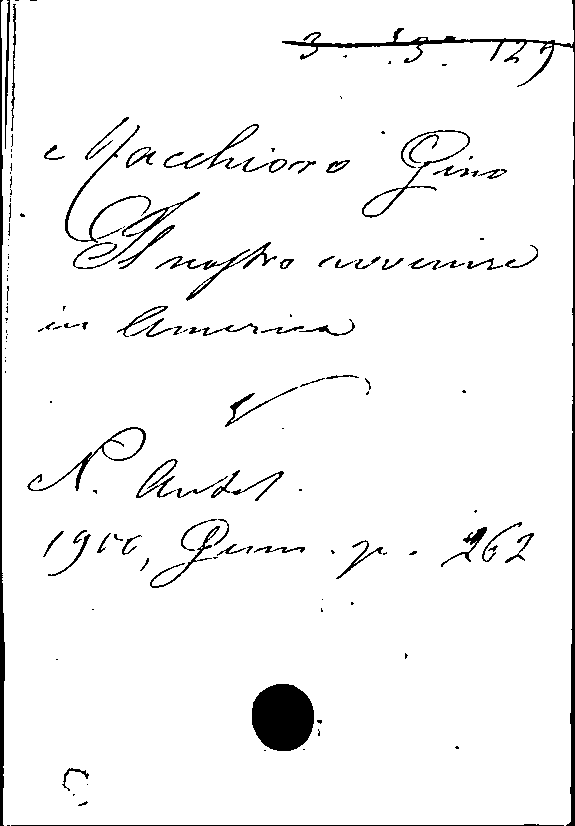 3. 3. 129
Macchioro Gino
Il nostro avvenire
in America
N. Antol.
1900, Genn. p. 262